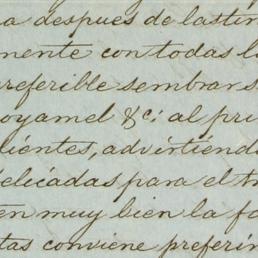 a despues de lastir
mente con todas la
referible sembrar s
oyamel &c: al pri
lientes, advirtiend
elicadas para el tr
en muy bien la fo
tas conviene preferir